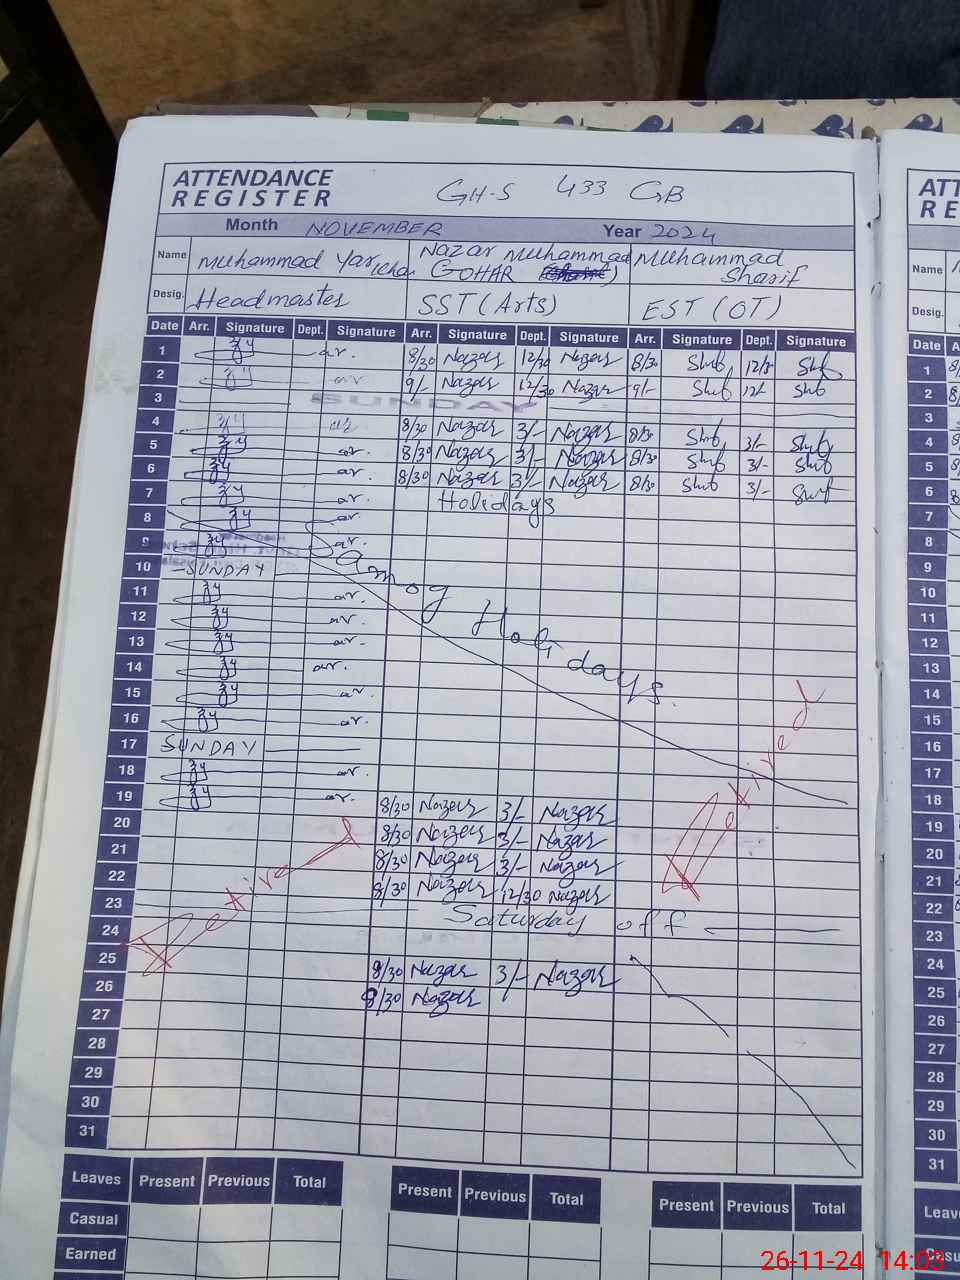 ATTENDANCE
REGISTER
GH-S 433 GB
Month NOVEMBER Year 2024
Name Muhammad Nazar Muhammad GOHAR Muhammad Sharif
Desig. Headmaster SST (Arts) EST (OT)
Date Arr. Signature Dept. Signature Arr. Signature Dept. Signature Arr. Signature Dept. Signature
1 ar. 8/30 Nazar 12/30 Nazar 8/30
2 ar 9/- Nazar 12/30 Nazar 9/- 12/-
3 SUNDAY
4 ar 8/30 Nazar 3/- Nazar 8/30 3/-
5 ar. 8/30 Nazar 3/- Nazar 8/30 3/-
6 ar. 8/30 Nazar 3/- Nazar 8/30 3/-
7 ar. Holidays
8 ar.
9 ar.
10 SUNDAY
Smog Holidays.
11 ar.
12 ar.
13 ar.
14 ar.
15 ar.
16 ar.
17 SUNDAY
18 ar.
19 ar. 8/30 Nazar 3/- Nazar
20 8/30 Nazar 3/- Nazar
21 8/30 Nazar 3/- Nazar
22 8/30 Nazar 12/30 Nazar
23 Saturday off
24
25 8/30 Nazar 3/- Nazar
26 8/30 Nazar
27
28
29
30
31
Retired
Retired
Leaves Present Previous Total Present Previous Total Present Previous Total
Casual
Earned
Name
Desig.
Date
1
2
3
4
5
6
7
8
9
10
11
12
13
14
15
16
17
18
19
20
21
22
23
24
25
26
27
28
29
30
31
26-11-24 14:03